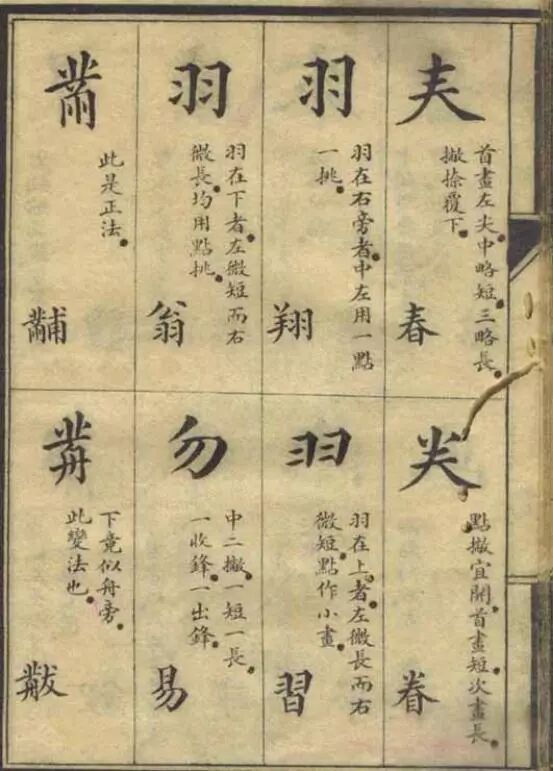 𡗗
首畫左尖。中略短。三略長。
撇捺覆下。
春
龹
點撇宜開。首畫短。次畫長。
眷
羽
羽在右旁者。中左用一點
一挑。
翔
羽
羽在上者。左微長而右
微短。點作小畫。
習
羽
羽在下者。左微短而右
微長。均用點挑。
翁
勿
中二撇。一短一長。
一收鋒。一出鋒。
易
黹
此是正法。
黼
下竟似舟旁。
此變法也。
黻